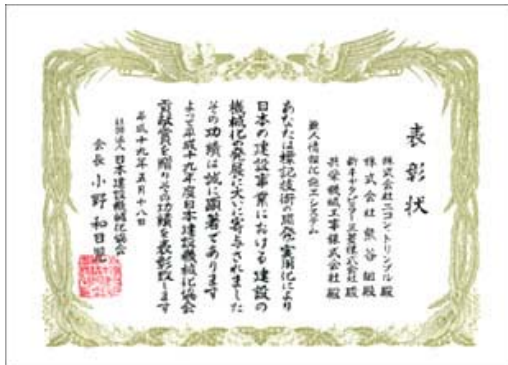 表彰状
株式会社ニコン・トリンブル殿
株式会社熊谷組殿
新キャタピラー三菱株式会社殿
共栄機械工事株式会社殿
無人情報化施工システム
あなたは標記技術の開発実用化により
日本の建設事業における建設の
機械化の発展に大いに寄与されました
その功績は誠に顕著であります
よって平成十九年度日本建設機械化協会
貢献賞を贈りその功績を表彰致します
平成十九年五月十八日
社団法人日本建設機械化協会
会長 小野和日児